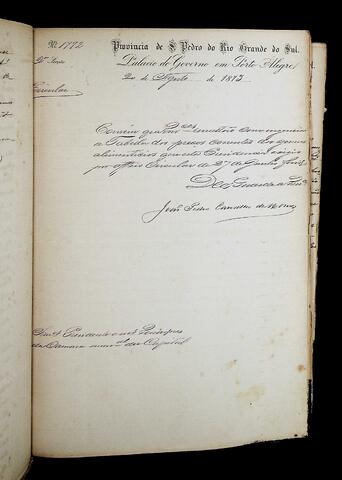 N. 1772
Provincia de S. Pedro do Rio Grande do Sul.
2ª Secção
Palacio do Governo em Porto Alegre,
de Agosto de 1873
Circular
Convém que VV. Sªs remettão com urgencia
a Tabella dos preços correntes dos generos
alimenticios que esta Presidencia exigio
por officio Circular de 2 de Junho
Deos Guarde a VV. Sªs
João Pedro Carvalho de Moraes
Snrs. Presidente e mais Vereadores
da Camara municipal da Capital